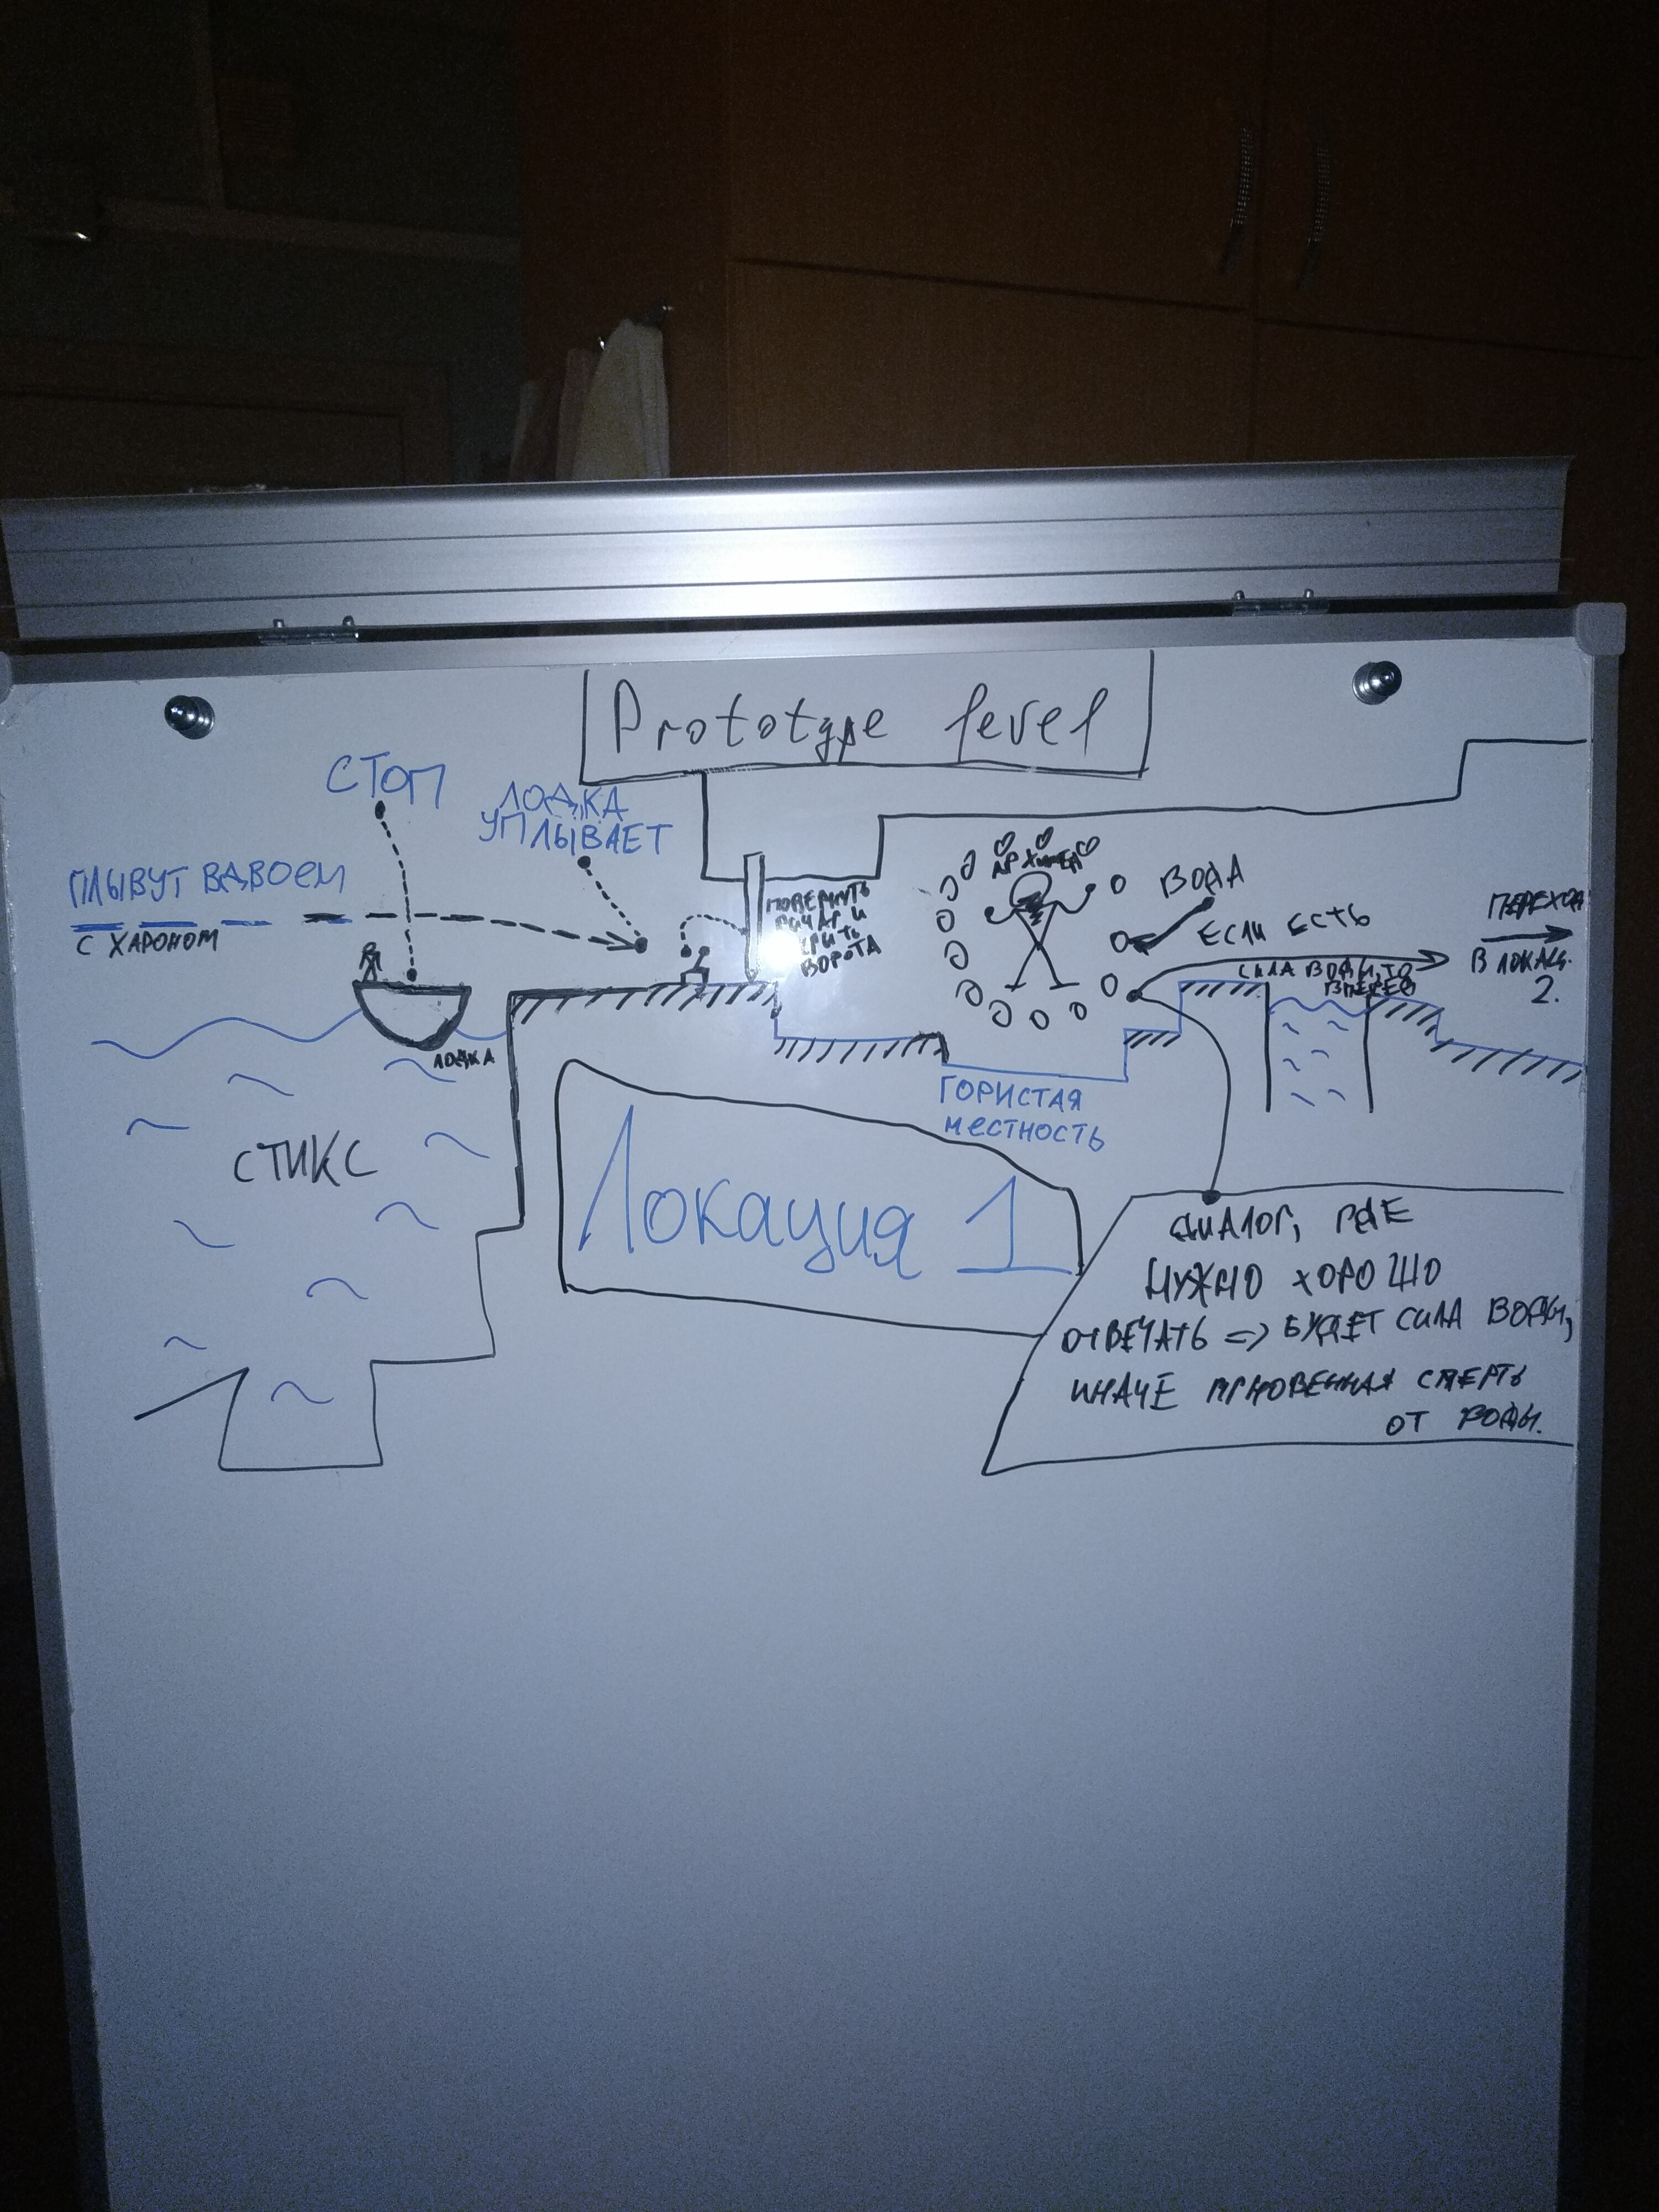 Prototype level
СТОП
ЛОДКА
УПЛЫВАЕТ
ПЛЫВУТ ВДВОЕМ
С ХАРОНОМ
ПОВЕРНУТЬ
РЫЧАГ И
ВОРОТА
АРХИМЕД
ВОДА
ЕСЛИ ЕСТЬ
СИЛА ВОДЫ, ТО
ВПЕРЕД
ПЕРЕХОД
В ЛОКАЦ.
2.
ЛОДКА
СТИКС
ГОРИСТАЯ
МЕСТНОСТЬ
Локация 1
ДИАЛОГ, ГДЕ
НУЖНО ХОРОШО
ОТВЕЧАТЬ => БУДЕТ СИЛА ВОДЫ,
ИНАЧЕ МГНОВЕННАЯ СМЕРТЬ
ОТ ВОДЫ.